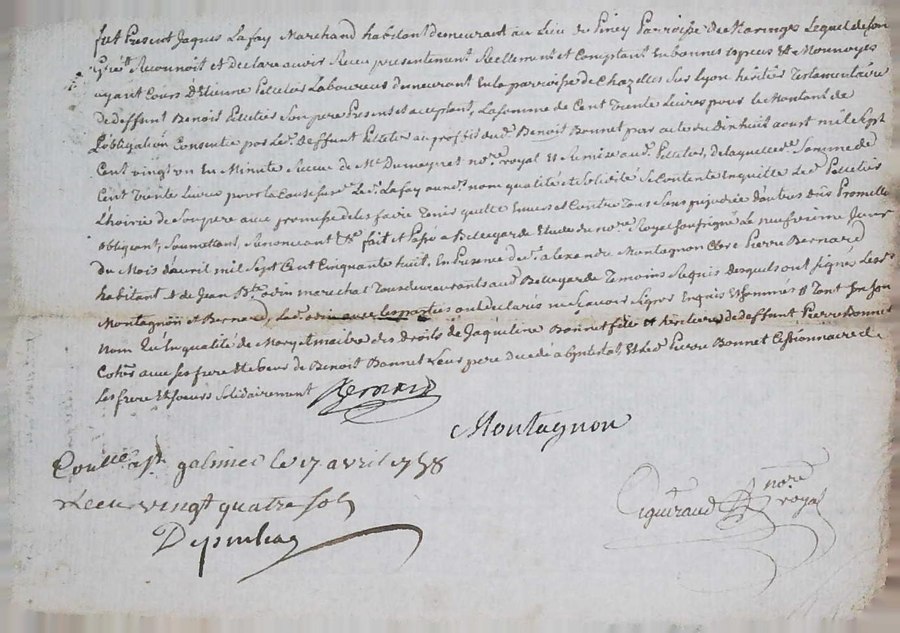 fut Present Jaques Lafay Marchand habitant demeurant au Lieu de Piney Parroisse de Maringes Lequel de son
Gré Reconnoit et Declare avoir Receu presentement Reellement et Comptant En bonnes especes Et Monnoyes
ayant Cours D'Etienne Pelletier Laboureur demeurant En la parroisse de Chazelles Sur Lyon heritier Testamentaire
de deffunt Benoist Pelletier Son pere Present et acceptant, La somme de Cent Trente Livres pour le Montant de
L'obligation Consentie par Led. deffunt Pelletier au proffit dud. Benoit Bonnet par acte du dix huit aoust mil Sept
Cent vingt un En Minute Receue de Me Dumeynet nore royal Et Remise aud. Pelletier, de laquelle de Somme de
Cent Trente Livres pour la Cause Led. Lafay aux nom qualité et Solidité Se Contente En quitte Led. Pelletier
L'hoirie de Son pere avec promesse de les faire Tenir quitte Envers et Contre Tous Sans prejudice d'autres Promettant
obligeant, Soumettant, Renoncant &a fait et Passé a Bellegarde Etude du nore Royal Soussigné Le neufvieme Jour
du Mois d'avril mil Sept Cent Cinquante huit, En Presence de Sr alexandre Montagnon Pierre Bernard
habitant Et de Jean Bte odin marechal Tous demeurants aud. Bellegarde Temoins Requis desquels ont Signé Lesd.
Montagnon et Bernard, Led. odin avec les parties ont declaré ne Scavoir Signer Enquis Et Sommés Tant En Son
nom qu'En qualité de Mary et maitre des droits de Jaqueline Bonnet fille et heritiere de deffunt Pierre Bonnet
Cohers avec Ses frere Et Soeur de Benoit Bonnet Leur pere decedé abintestat, Et Led. Pierre Bonnet Cessionnaire de
Ses frere Et Soeurs Solidairement Bernard
Montagnon
galmier le 17 avril 1758
Receu vingt quatre Sols
nore
royal